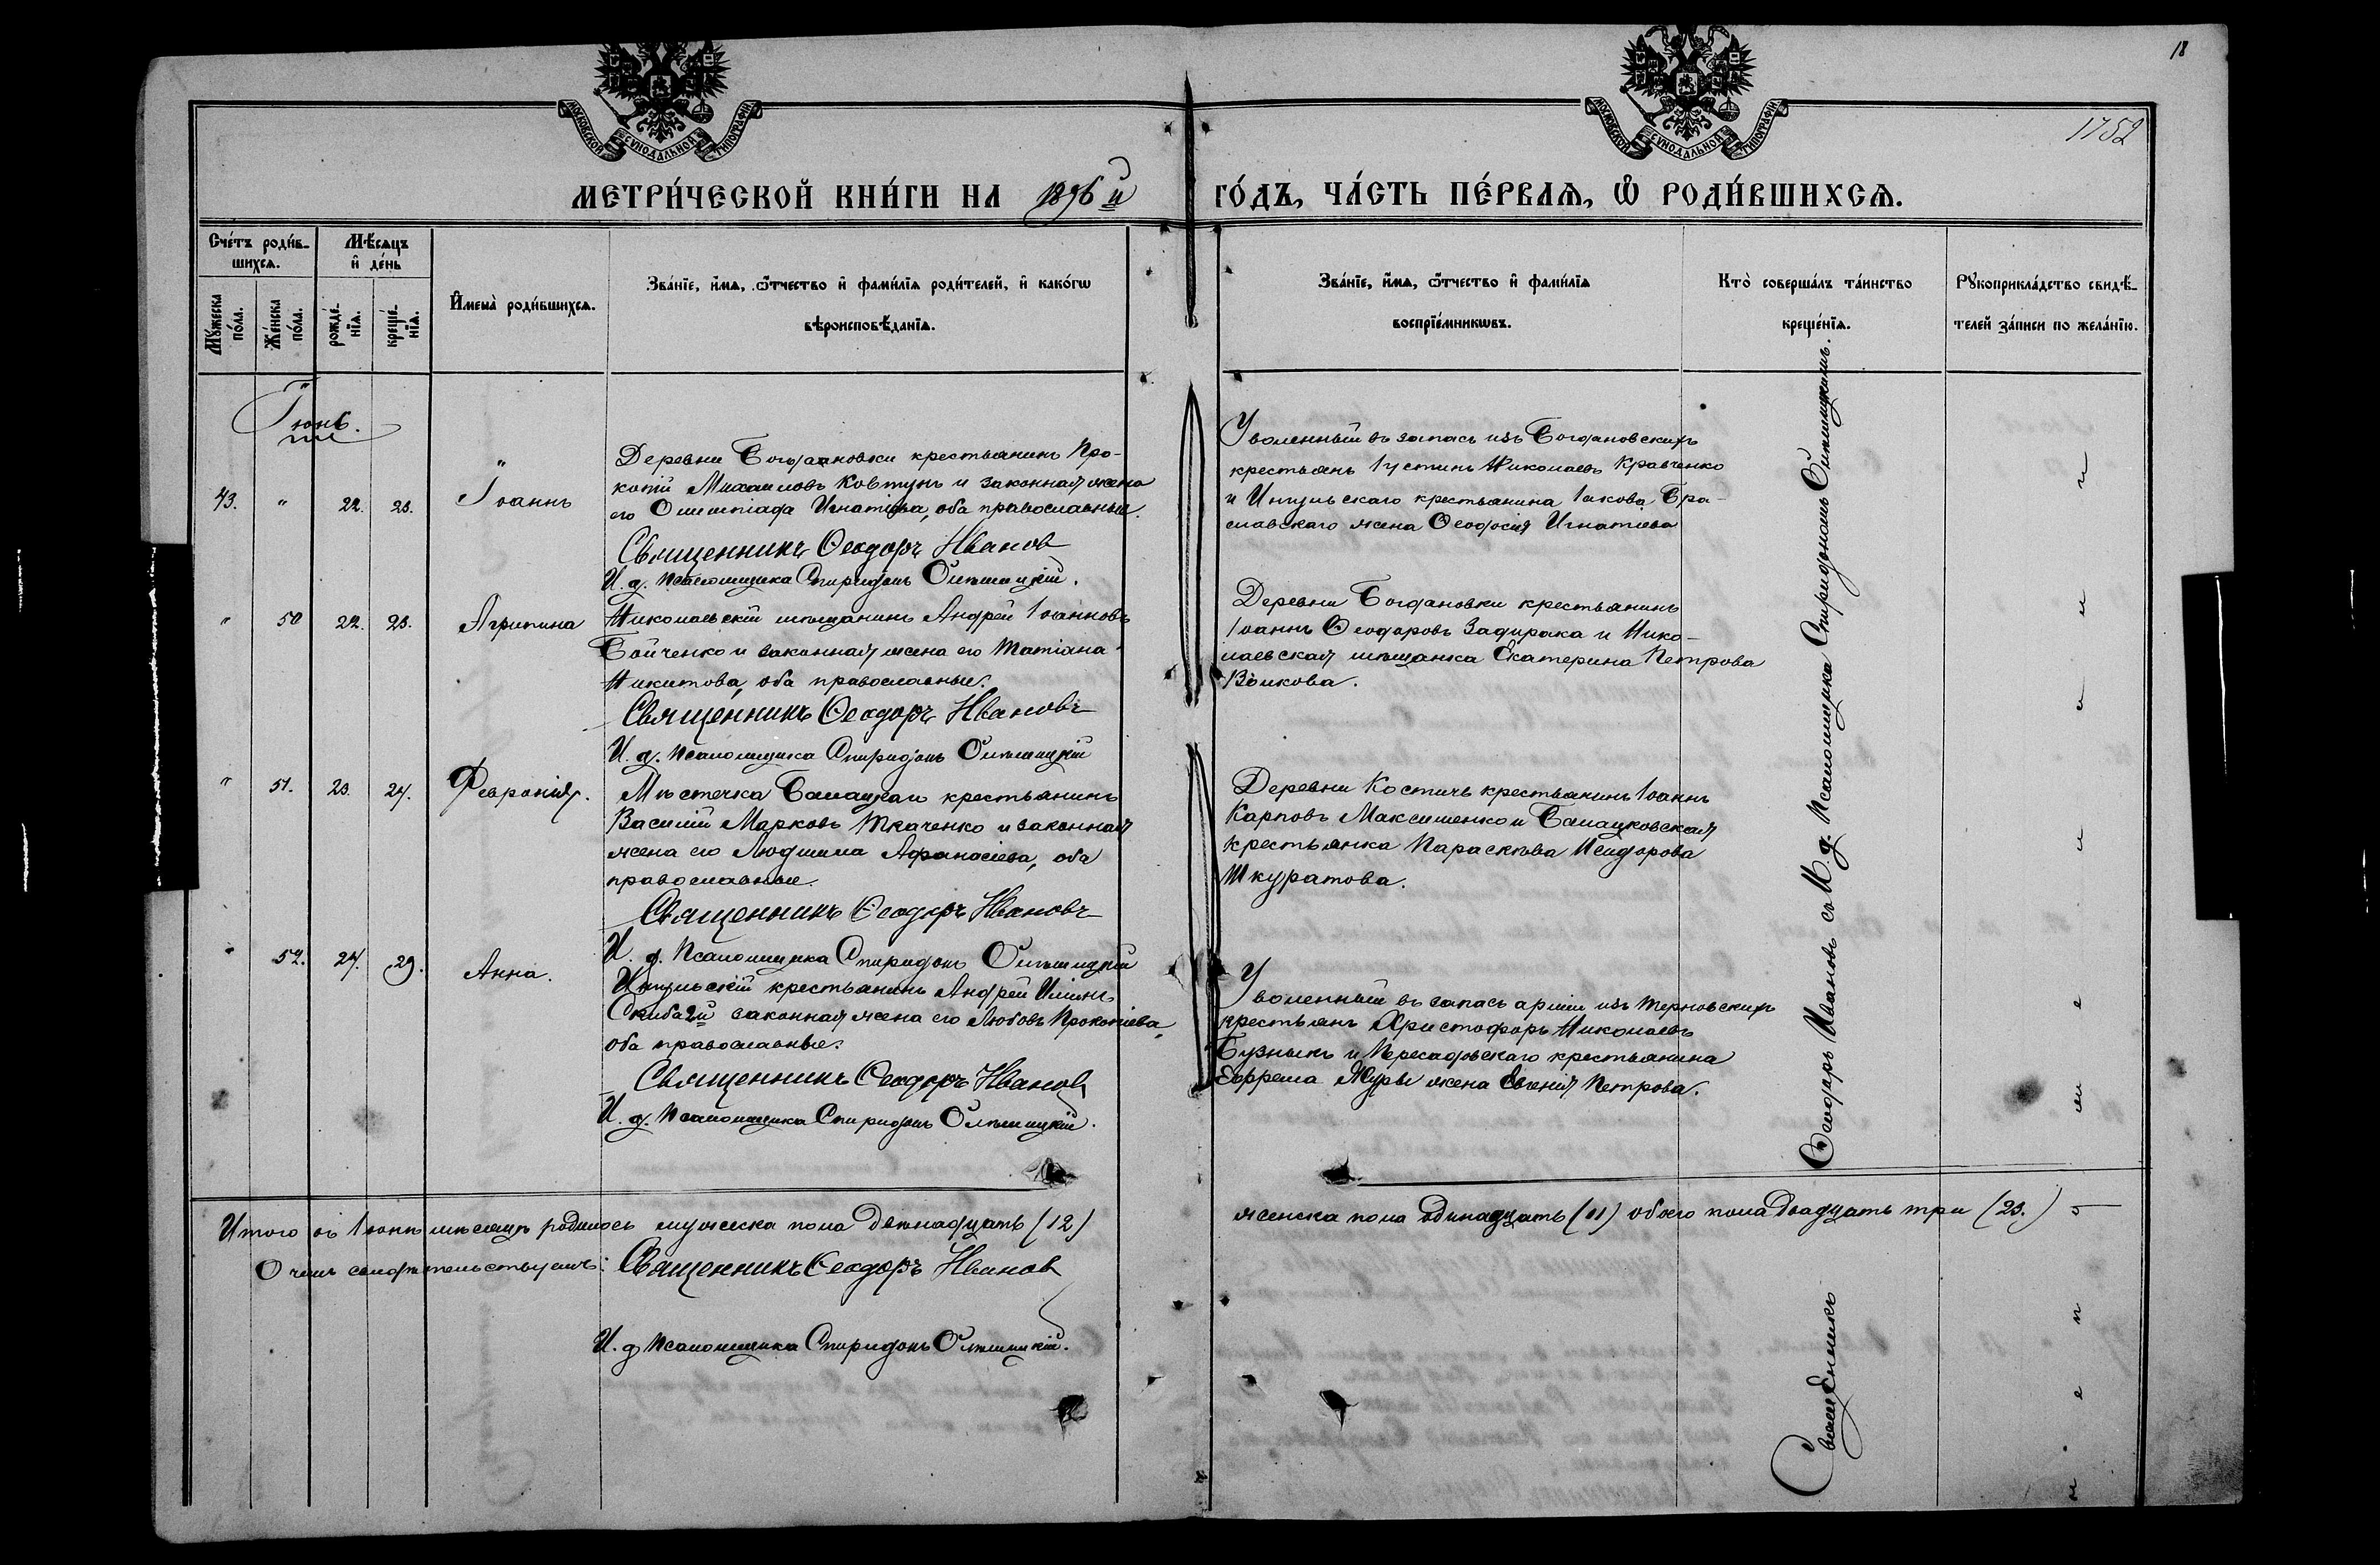 18
МОСКОВСКОЙ СѴНОДАЛЬНОЙ ТИПОГРАФІИ
МОСКОВСКОЙ СѴНОДАЛЬНОЙ ТИПОГРАФІИ
1752
МЕТРИ́ЧЕСКОЙ КНИ́ГИ НА 1896й ГО́ДЪ, ЧА́СТЬ ПЕ́РВАѦ, Ѡ҆ РОДИ́ВШИХСѦ.
Сче́тъ роди́в-
шихсѧ.
Мѣ́сѧцъ
и҆ де́нь
Мꙋ́жеска
по́ла.
Же́нска
по́ла.
рожде́-
нїѧ.
креще́-
нїѧ.
И҆мена̀ роди́вшихсѧ.
Зва́нїе, и҆́мѧ, ѻ҆́тчество и҆ фами́лїѧ роди́телей, и҆ како́гѡ
вѣроисповѣ́данїѧ.
Зва́нїе, и҆́мѧ, ѻ҆́тчество и҆ фами́лїѧ
воспрїе́мникѡвъ.
Кто̀ соверша́лъ та́инство
креще́нїѧ.
Рꙋкоприкла́дство свидѣ́-
телей за́писи по жела́нїю.
Іюнь.
43. " 22. 23. Іоаннъ
Деревни Богдановки крестьянинъ Про-
копій Михаиловъ Ковтунъ и законная жена
его Олимпіада Игнатіева, оба православные.
Священникъ Ѳеодоръ Иванов
И. д. псаломщика Спиридонъ Олѣшицкій.
Уволенный въ запасъ изъ Богдановскихъ
крестьянъ Іустинъ Николаевъ Кравченко
и Ингульскаго крестьянина Іакова Бра-
славскаго жена Ѳеодосія Игнатіева
" 50 22. 23. Агрипина
Николаевскій мѣщанинъ Андрей Іоанновъ
Бойченко и законная жена его Татіана
Никитова, оба православные.
Священникъ Ѳеодоръ Ивановъ
И. д. псаломщика Спиридонъ Олѣшицкій
Деревни Богдановки крестьянинъ
Іоаннъ Ѳеодоровъ Задирака и Нико-
лаевская мѣщанка Екатерина Петрова
Волкова.
" 51. 23. 24. Февронія.
Мѣстечка Балацкаго крестьянинъ
Василій Марковъ Ткаченко и законная
жена его Людмила Афанасіева, оба
православные.
Священникъ Ѳеодоръ Ивановъ
И. д. Псаломщика Спиридонъ Олѣшицкій
Деревни Костичъ крестьянинъ Іоаннъ
Карповъ Максименко и Балацковская
крестьянка Параскѣва Исидорова
Шкуратова.
" 52. 24. 29. Анна.
Ингульскій крестьянинъ Андрей Иліинъ
Скиба 2й законная жена его Любовь Прокопіева,
оба православные.
Священникъ Ѳеодоръ Иванов
И. д. Псаломщика Спиридонъ Олѣшицкій.
Уволенный въ запасъ арміи изъ Терновскихъ
крестьянъ Христофоръ Николаевъ
Бузныкъ и Пересадовскаго крестьянина
Ефрема Журы жена Евгенія Петрова.
Священникъ Ѳеодоръ Ивановъ съ И. д. Псаломщика Спиридономъ Олѣшицкимъ.
Итого въ Іюнѣ мѣсяцѣ родилось мужеска пола двѣнадцать (12)
женска пола одинадцать (11) обоего пола двадцать три (23.)
О чемъ свидѣтельствуемъ: Священникъ Ѳеодоръ Иванов
И. д. Псаломщика Спиридонъ Олѣшицкій.